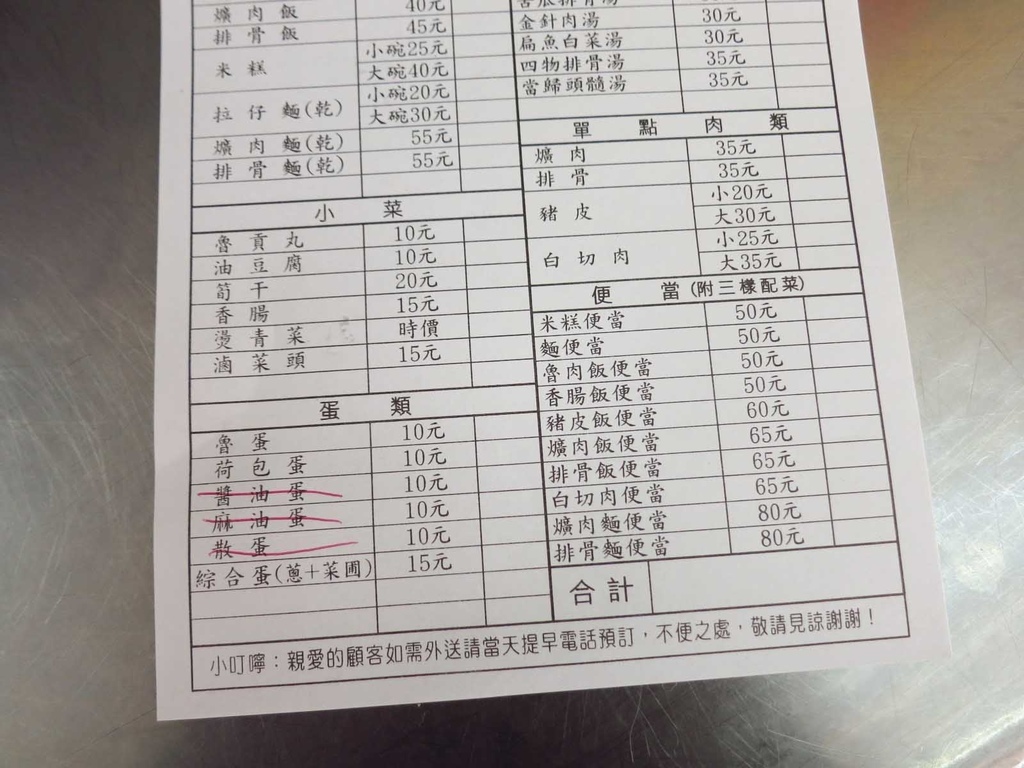 爌肉飯 40元
排骨飯 45元
米糕 小碗25元
大碗40元
拉仔麵(乾) 小碗20元
大碗30元
爌肉麵(乾) 55元
排骨麵(乾) 55元
小菜
魯貢丸 10元
油豆腐 10元
筍干 20元
香腸 15元
燙青菜 時價
滷菜頭 15元
蛋類
魯蛋 10元
荷包蛋 10元
醬油蛋 10元
麻油蛋 10元
散蛋 10元
綜合蛋(蔥+菜圃) 15元
苦瓜排骨湯
金針肉湯 30元
扁魚白菜湯 30元
四物排骨湯 35元
當歸頭髓湯 35元
單點肉類
爌肉 35元
排骨 35元
豬皮 小20元
大30元
白切肉 小25元
大35元
便當(附三樣配菜)
米糕便當 50元
麵便當 50元
魯肉飯便當 50元
香腸飯便當 50元
豬皮飯便當 60元
爌肉飯便當 65元
排骨飯便當 65元
白切肉便當 65元
爌肉麵便當 80元
排骨麵便當 80元
合計
小叮嚀：親愛的顧客如需外送請當天提早電話預訂，不便之處，敬請見諒謝謝！